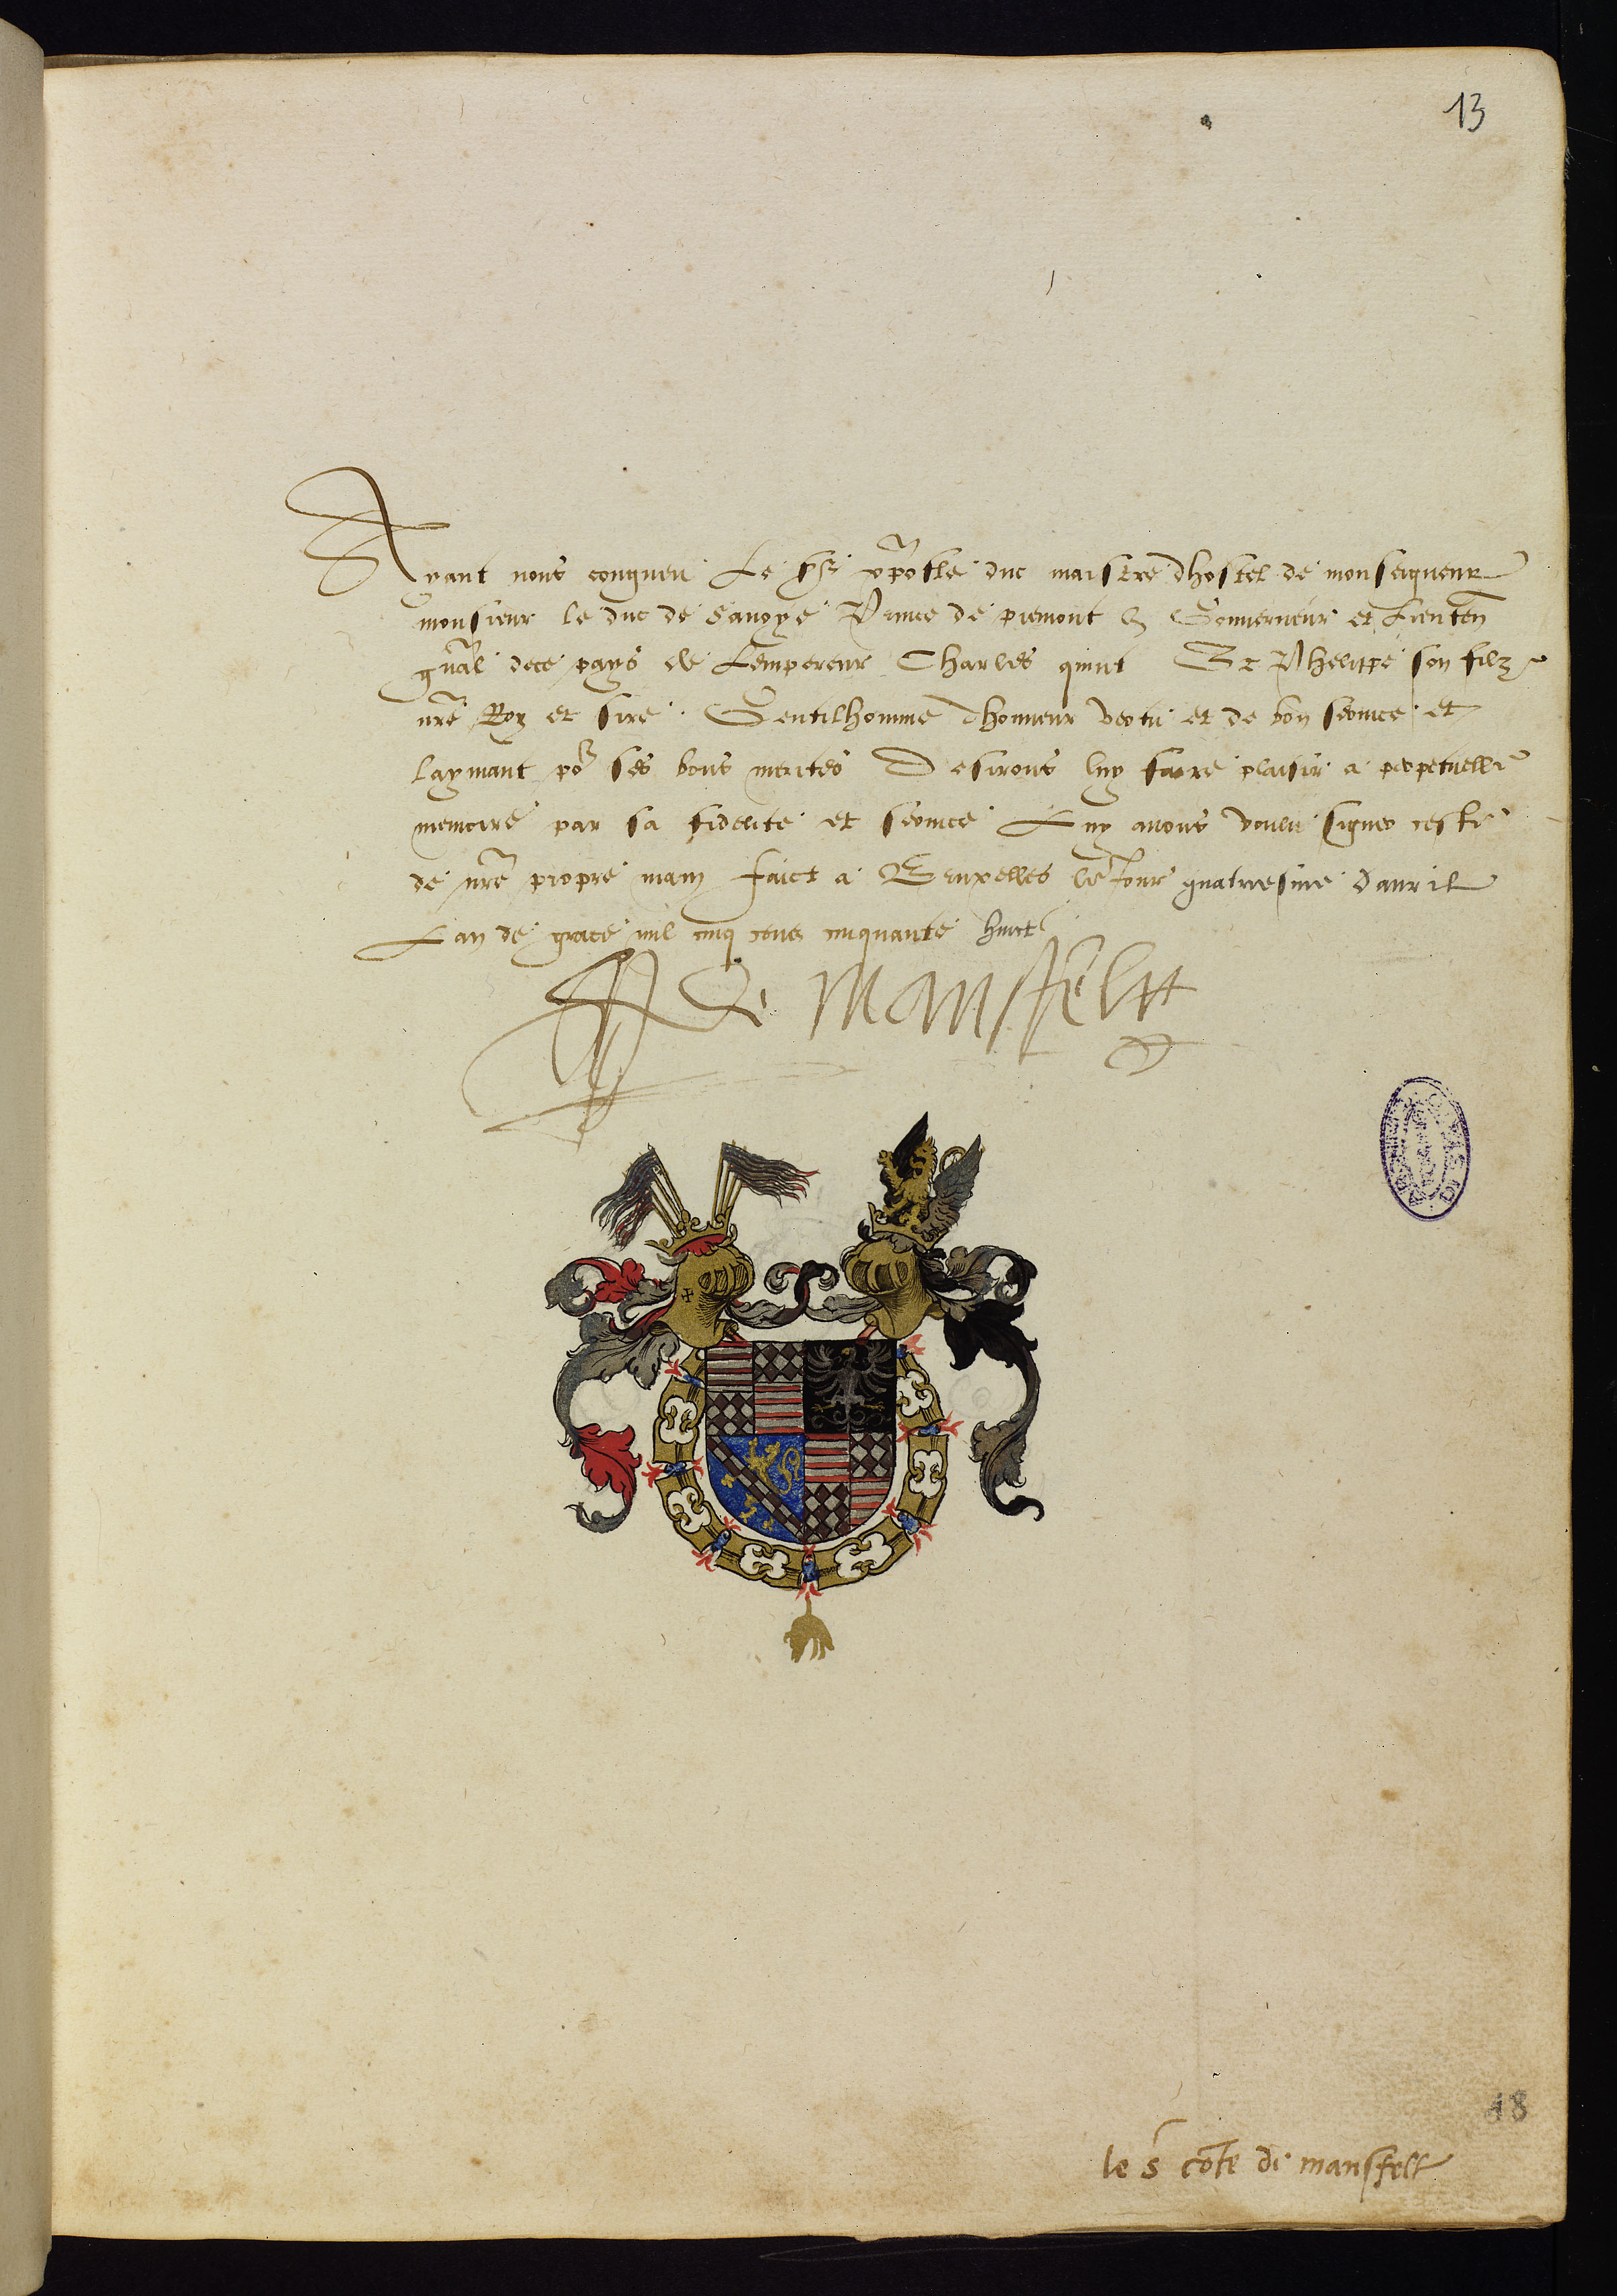 13
Ayant nous congneu Le Sr xpofle duc maistre dhostel de monseigneur
monsieur le duc de Savoye Prince de piemont & Gouverneur et Lieuten
gnãl dece pays de Lempereur Charles quint Et Phelippe son filz
nrẽ Roy et sire. Gentilhomme dhonneur vertu et de bon service et
laymant por ses bons merites Desirons luy faire plaisir a perpetuelle
memoire par sa fidelite et service Luy avons voulu signer ceste
de nrẽ propre main faict a Bruxelles le Jour quatriesme davril
Lan de grace mil cinq cens cinquante huict
de Mansfeltt
18
le s cõte de mansfelt